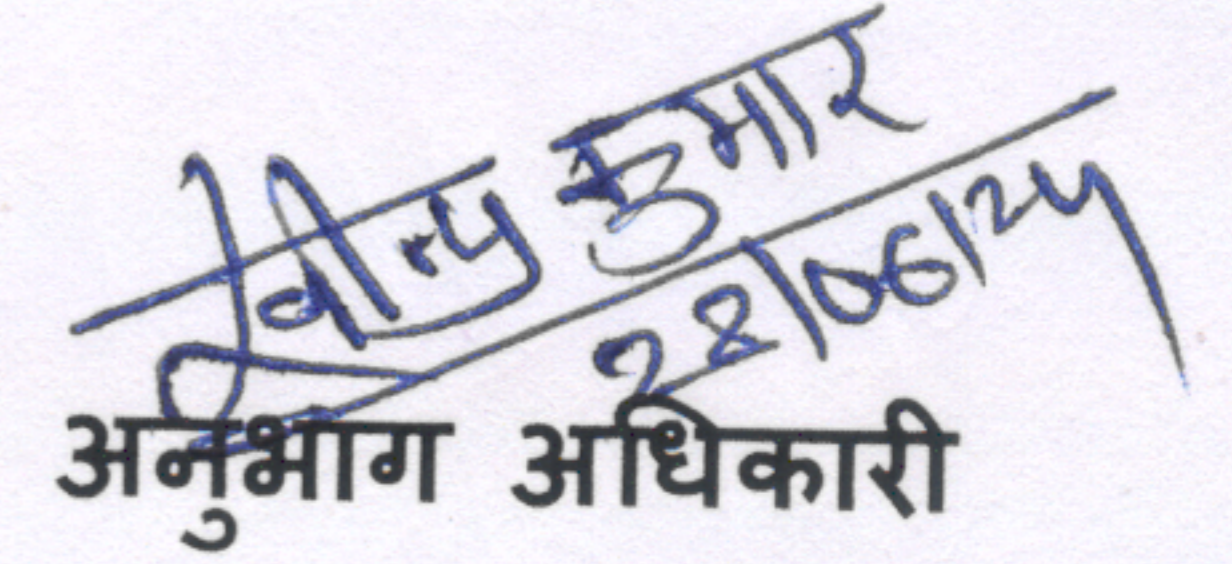 रवीन्द्र कुमार
28/06/24
अनुभाग अधिकारी